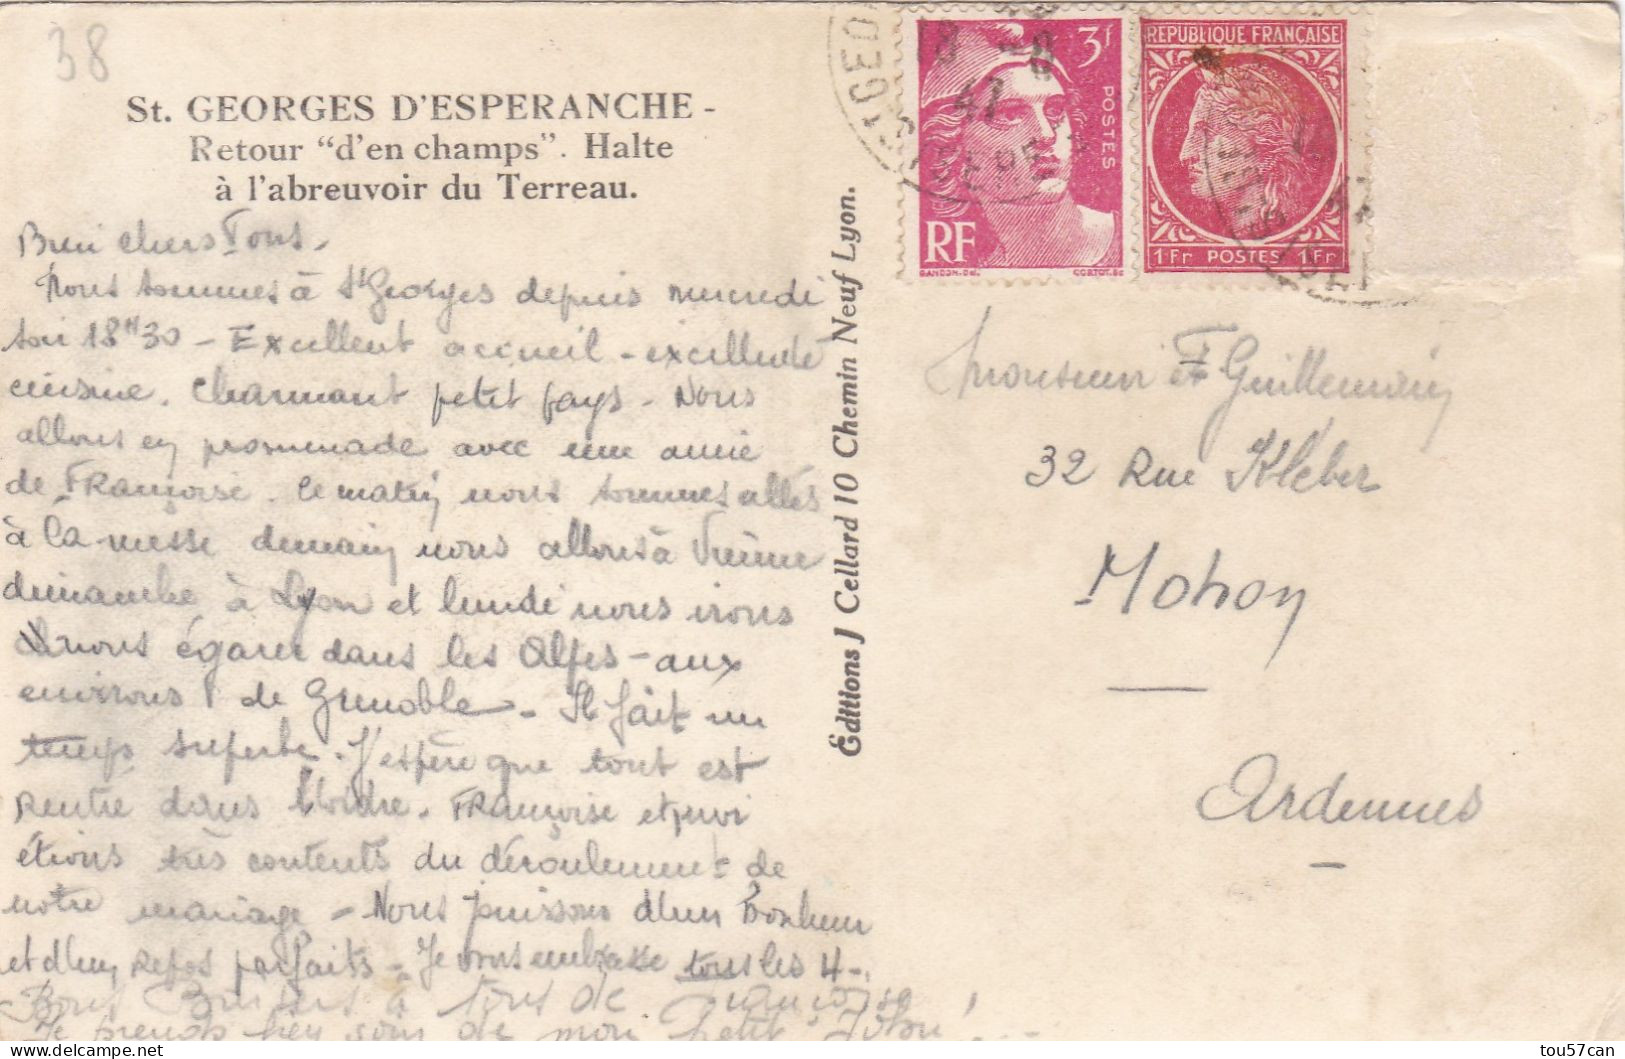 38
St. GEORGES D'ESPERANCHE -
Retour "d'en champs". Halte
à l'abreuvoir du Terreau.
Bien chers Tous.
Nous sommes à St Georges depuis mercredi
soir 18H30 - Excellent accueil - excellente
cuisine. Charmant petit pays - Nous
allons en promenade avec une amie
de Françoise. Ce matin nous sommes allés
à la messe demain nous allons à Vienne
dimanche à Lyon et lundi nous irons
nous égarer dans les Alpes - aux
environs de Grenoble - Il fait un
temps superbe. J'espère que tout est
rentré dans l'ordre. Françoise et moi
étions très contents du déroulement de
notre mariage - Nous jouissons d'un Bonheur
et d'un Repos parfaits - Je vous embrasse tous les 4 -
Bons Baisers à tous de Françoise
Je prends bien soin de mon petit
Editions J Cellard 10 Chemin Neuf Lyon.
3f
POSTES
RF
GANDON-Del. CORTOT.Sc
REPUBLIQUE FRANÇAISE
1Fr POSTES 1Fr
ST GEO
18 -8
47
ISERE
Monsieur et Guillemin
32 Rue Kléber
Mohon
Ardennes
tou57can